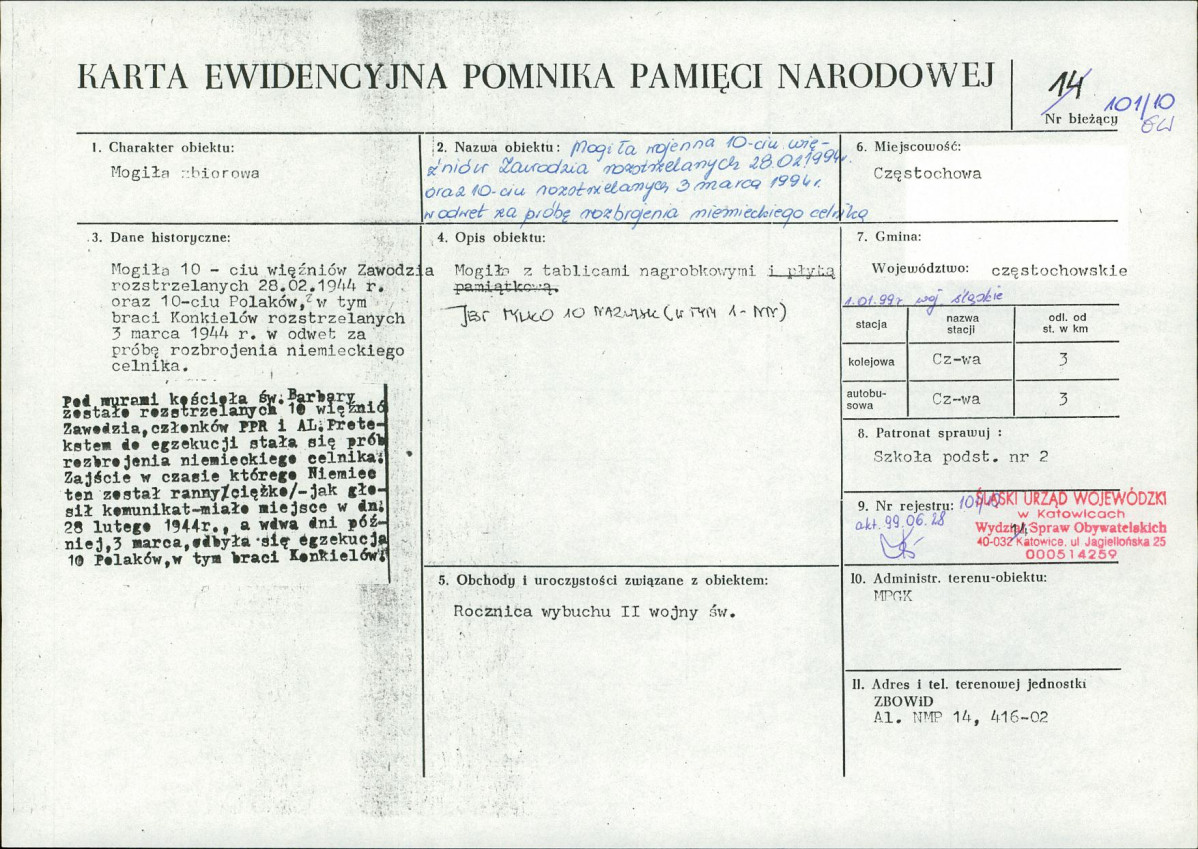 KARTA EWIDENCYJNA POMNIKA PAMIĘCI NARODOWEJ
14
101/10
Nr bieżący
1. Charakter obiektu:
Mogiła zbiorowa
2. Nazwa obiektu: Mogiła wojenna 10-ciu wię-
źniów Zawodzia rozstrzelanych 28.02.1994r.
oraz 10-ciu rozstrzelanych 3 marca 1994r.
w odwet za próbę rozbrojenia niemieckiego celnika
6. Miejscowość:
Częstochowa
3. Dane historyczne:
Mogiła 10 - ciu więźniów Zawodzia
rozstrzelanych 28.02.1944 r.
oraz 10-ciu Polaków, w tym
braci Konkielów rozstrzelanych
3 marca 1944 r. w odwet za
próbę rozbrojenia niemieckiego
celnika.
Pod murami kościoła św. Barbary
zostało rozstrzelanych 10 więźnió
Zawodzia,członków PPR i AL.Prete-
kstem do egzekucji stała się prób
rozbrojenia niemieckiego celnika.
Zajście w czasie którego Niemiec
ten został ranny/ciężko/-jak gło-
sił komunikat-miało miejsce w dn.
28 lutego 1944r., a wdwa dni póź-
niej,3 marca,odbyła się egzekucja
10 Polaków,w tym braci Konkielów.
4. Opis obiektu:
Mogiła z tablicami nagrobkowymi i płytą
pamiątkową.
JEST TYLKO 10 NAZWISK (W TYM 1 - NN)
5. Obchody i uroczystości związane z obiektem:
Rocznica wybuchu II wojny św.
7. Gmina:
Województwo: częstochowskie
1.01.99r woj. śląskie
stacja
nazwa
stacji
odl. od
st. w km
kolejowa
Cz-wa
3
autobu-
sowa
Cz-wa
3
8. Patronat sprawuj :
Szkoła podst. nr 2
9. Nr rejestru: 101/10
akt. 99.06.28
ŚLĄSKI URZĄD WOJEWÓDZKI
w Katowicach
Wydział Spraw Obywatelskich
40-032 Katowice, ul Jagiellońska 25
000514259
10. Administr. terenu-obiektu:
MPGK
11. Adres i tel. terenowej jednostki
ZBOWiD
Al. NMP 14, 416-02